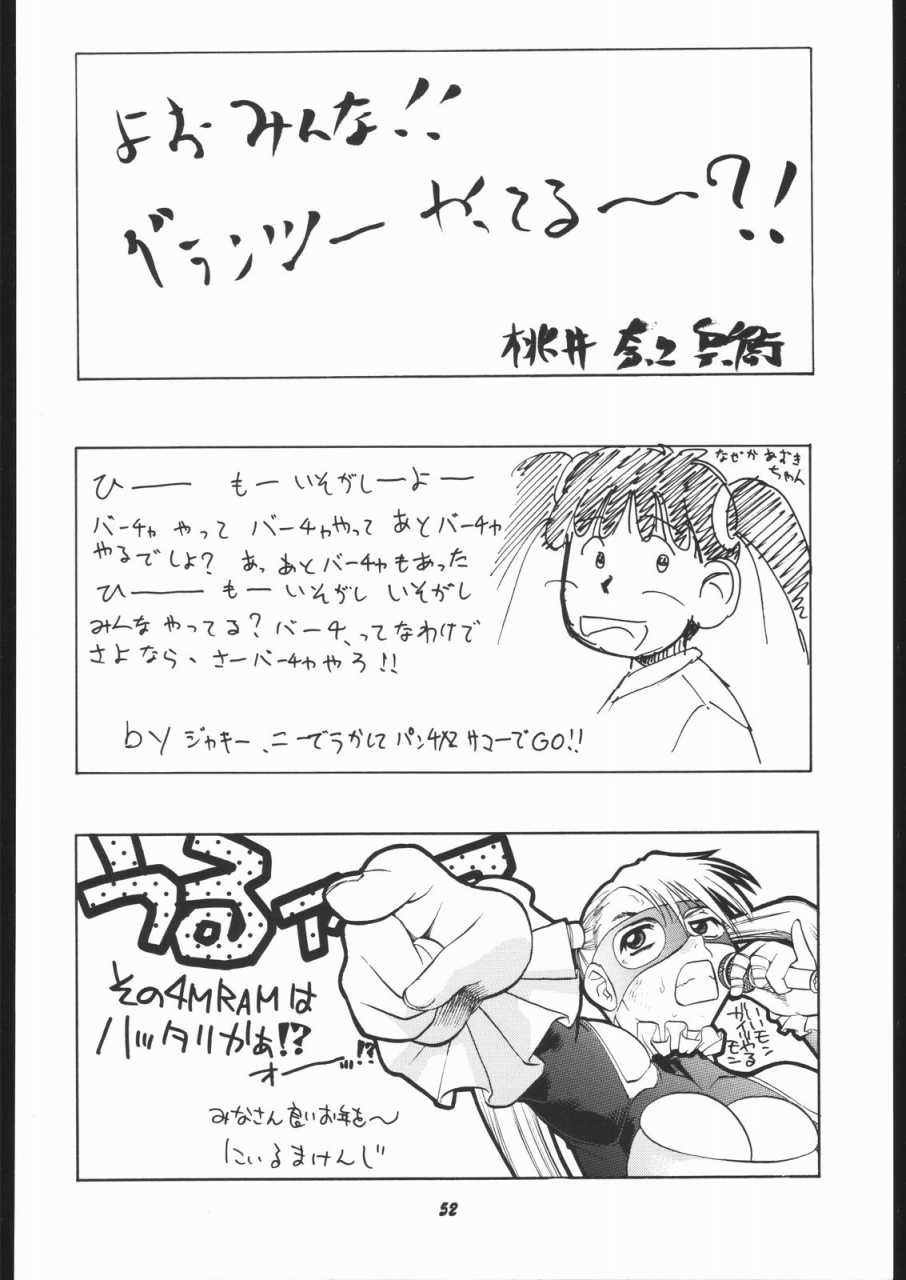 よお みんな!!
グランツー やってる〜?!
桃井
なぜかあずきちゃん
ひーー もーいそがしーよー
バーチャ やって バーチャやって あとバーチャ
やるでしょ? あっ あとバーチャもあった
ひーー もーいそがし いそがし
みんな やってる? バーチ、ってなわけで
さよなら、さーバーチャやろ!!
by ジャキー、ニーでうかして パンチ サマーでGO!!
その4MRAMは
ハッタリかぁ!?
オーーッ!?
みなさん良いお年を〜
にいるまけんじ
52